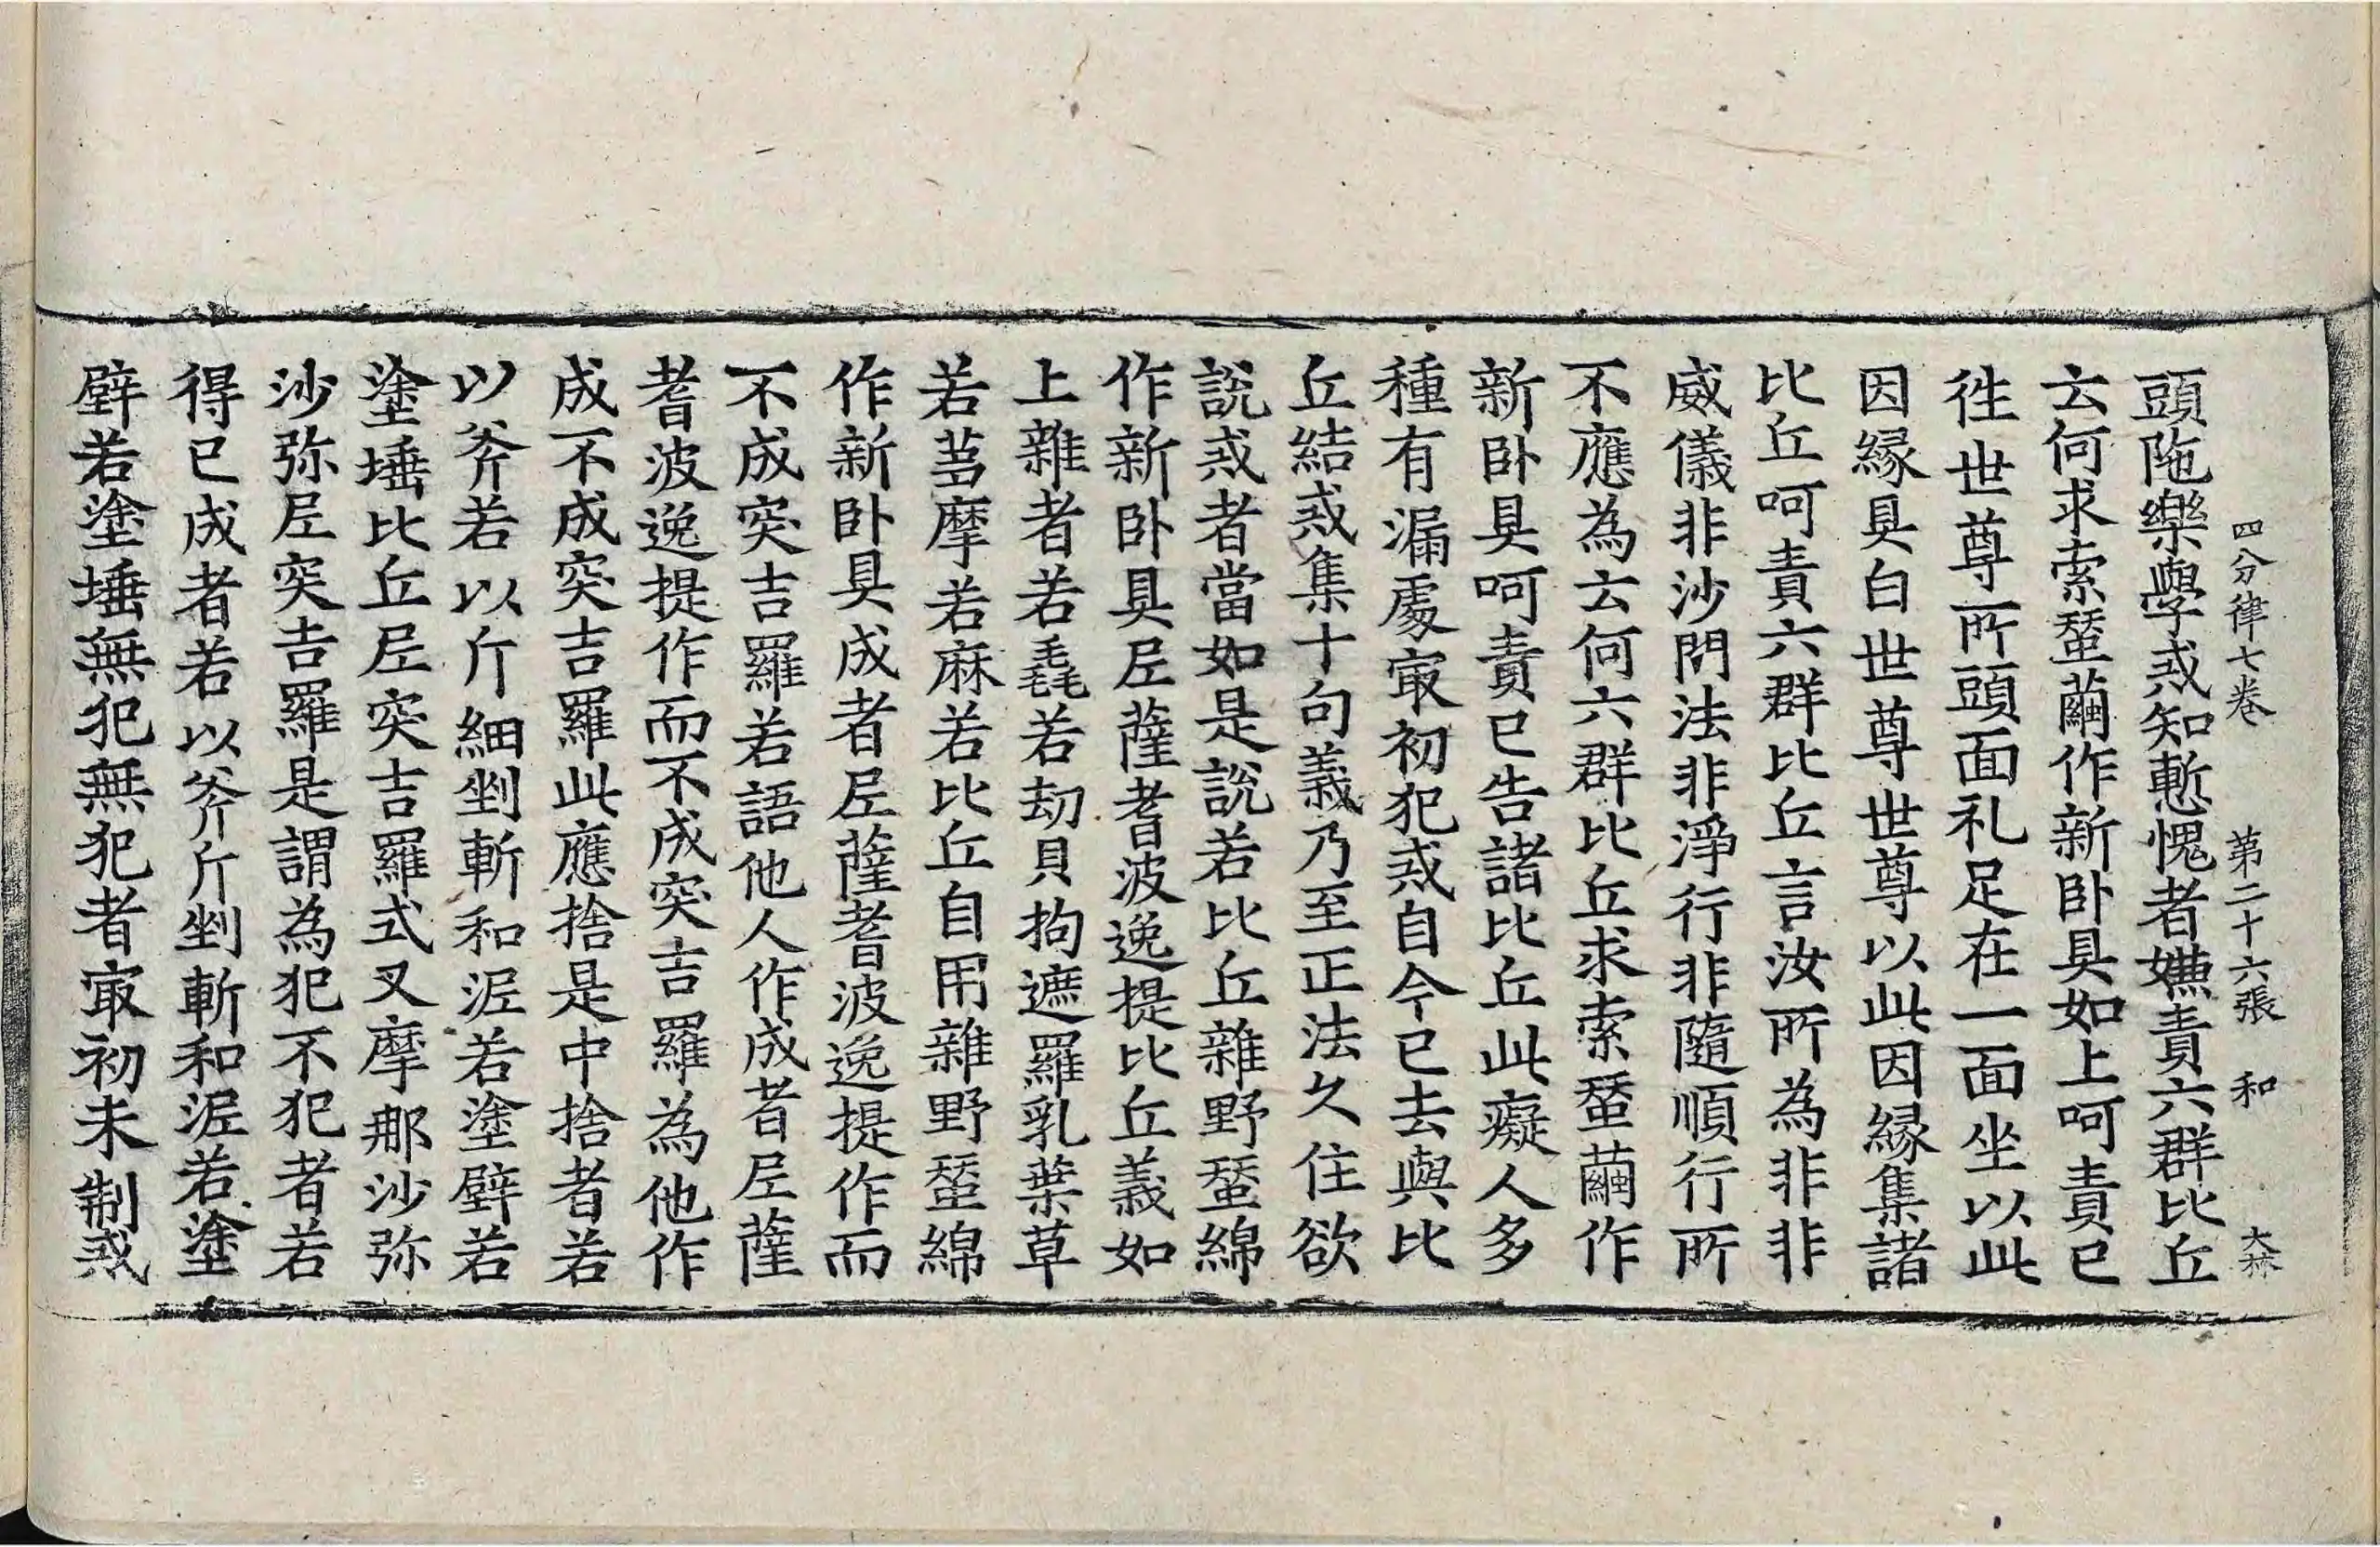 四分律七卷 第二十六張 和 大林
頭陁樂學戒知慙愧者嫌責六群比丘
云何求索蝅繭作新卧具如上呵責已
徃世尊所頭面礼足在一面坐以此
因縁具白世尊世尊以此因縁集諸
比丘呵責六群比丘言汝所為非非
威儀非沙門法非淨行非隨順行所
不應為云何六群比丘求索蝅繭作
新卧具呵責已告諸比丘此癡人多
種有漏處㝡初犯戒自今已去與比
丘結戒集十句義乃至正法久住欲
說戒者當如是說若比丘雜野蝅綿
作新卧具尼薩耆波逸提比丘義如
上雜者若毳若劫貝拘遮羅乳葉草
若芻摩若麻若比丘自用雜野蝅綿
作新卧具成者尼薩耆波逸提作而
不成突吉羅若語他人作成者尼薩
耆波逸提作而不成突吉羅為他作
成不成突吉羅此應捨是中捨者若
以斧若以斤細剉斬和泥若塗壁若
塗埵比丘尼突吉羅式叉摩那沙弥
沙弥尼突吉羅是謂為犯不犯者若
得已成者若以斧斤剉斬和泥若塗
壁若塗埵無犯無犯者㝡初未制戒